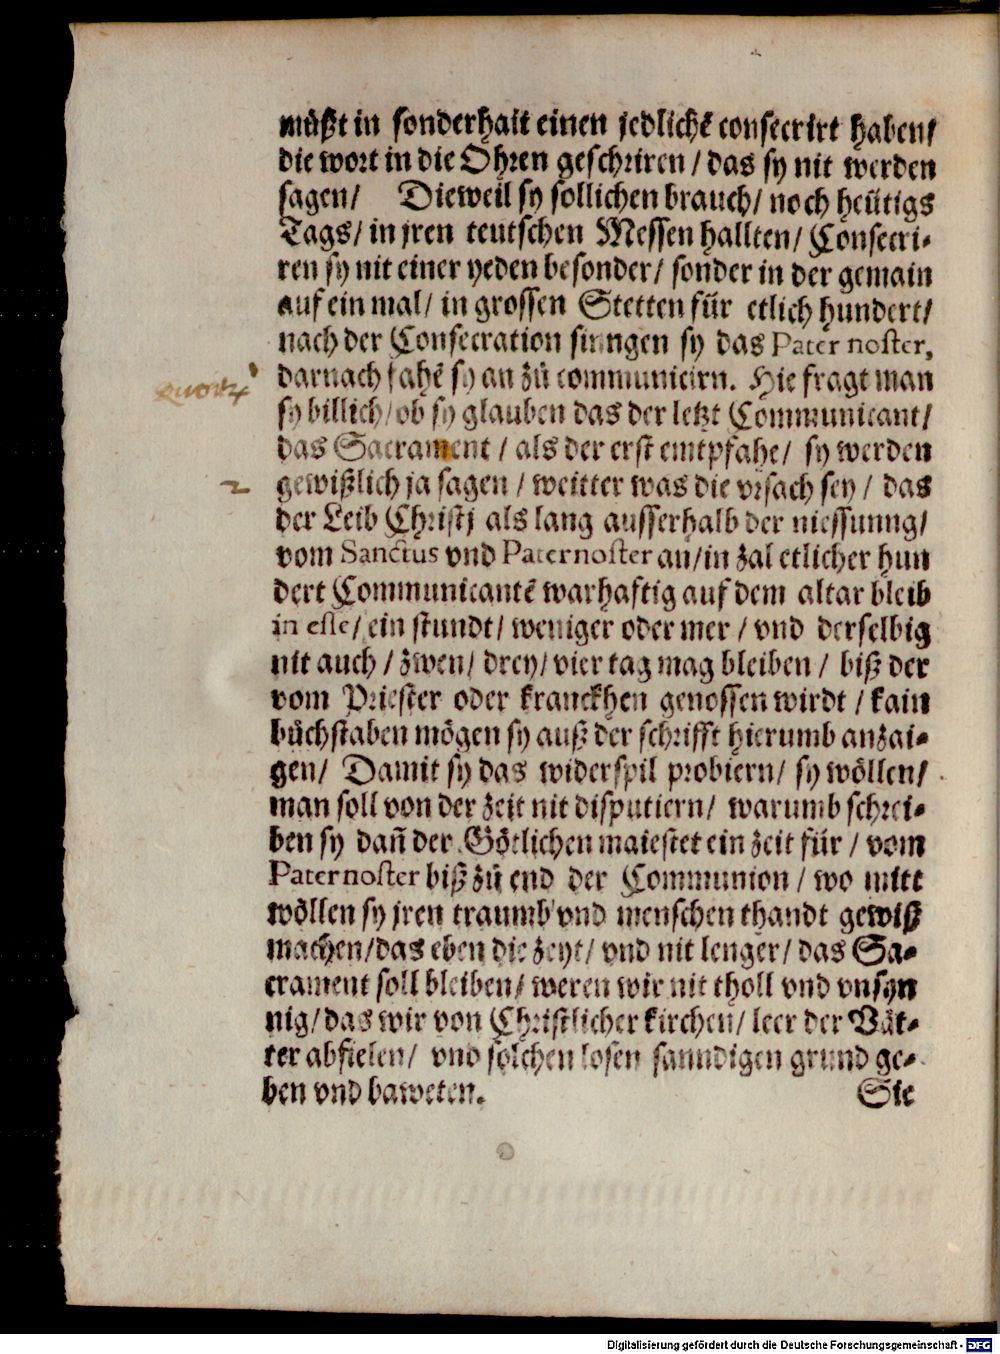 müßt in sonderhait einen jedlichē consecrirt haben/
die wort in die Ohren geschriren / das sy nit werden
sagen/ Dieweil sy sollichen brauch/ noch heütigs
Tags/ in jren teutschen Messen hallten/ Consecri⸗
ren sy nit einer yeden besonder/ sonder in der gemain
auf ein mal/ in grossen Stetten für etlich hundert/
nach der Consecration sinngen sy das Pater noster,
darnach fahē sy an zů communicirn. Hie fragt man
sy billich/ ob sy glauben das der letzt Communicant/
das Sacrament / als der erst emtpfahe/ sy werden
gewißlich ja sagen / weitter was die vrsach sey / das
der Leib Christj als lang ausserhalb der niessunng/
vom Sanctus vnd Pater noster an/in zal etlicher hun
dert Communicantē warhaftig auf dem altar bleib
in esse/ ein stundt/ weniger oder mer / vnd derselbig
nit auch / zwen/ drey/ vier tag mag bleiben / biß der
vom Priester oder kranckhen genossen wirdt / kain
bůchstaben mögen sy auß der schrifft hierumb anzai⸗
gen/ Damit sy das widerspil probiern/ sy wöllen/
man soll von der zeit nit disputiern/ warumb schrei⸗
ben sy dañ der Götlichen maiestet ein zeit für / vom
Pater noster biß zů end der Communion / wo mitt
wöllen sy jren traumb vnd menschen thandt gewiß
machen/das eben die zeyt/ vnd nit lenger/ das Sa⸗
crament soll bleiben/ weren wir nit tholl vnd vnsyn
nig/ das wir von Christlicher kirchen/ leer der Vät⸗
ter abfielen/ vnd solchen losen sanndigen grund ge⸗
ben vnd baweten. Sie
2
Digitalisierung gefördert durch die Deutsche Forschungsgemeinschaft - DFG